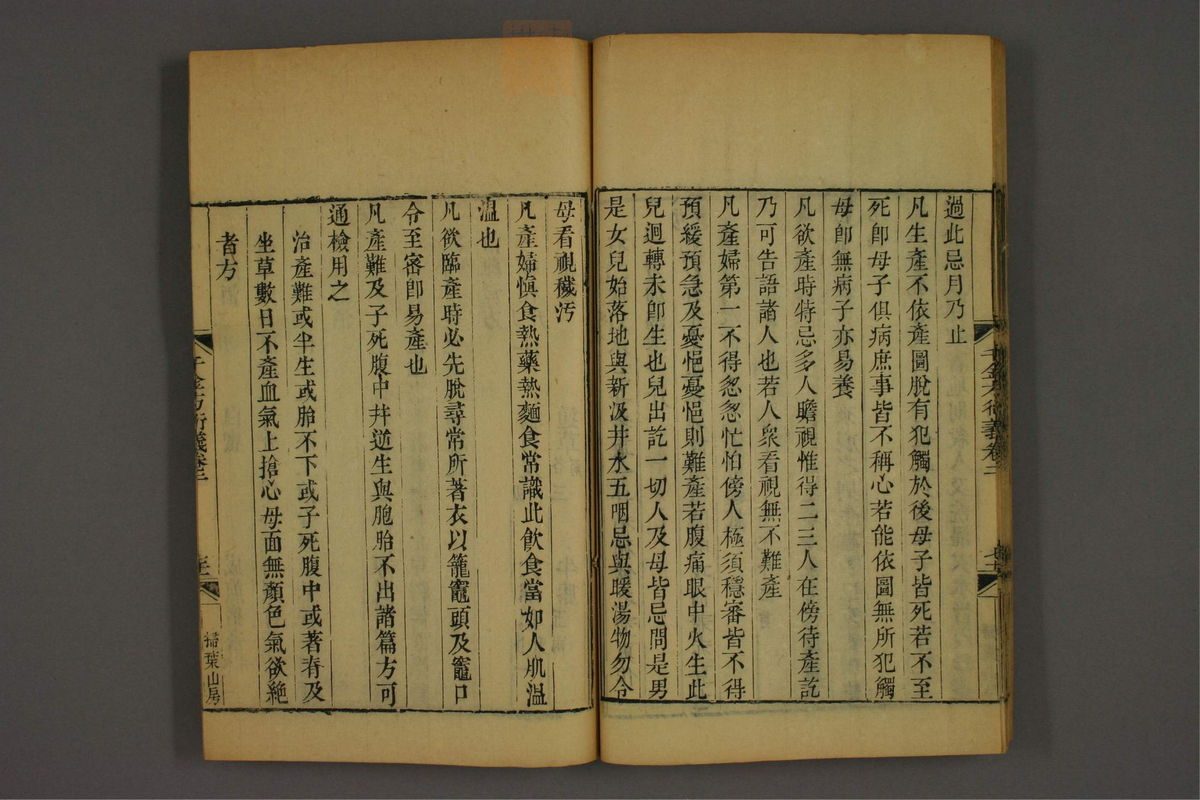 過此忌月乃止
凡生產不依產圖脫有犯觸於後母子皆死若不至
死卽母子俱病庶事皆不稱心若能依圖無所犯觸
母卽無病子亦易養
凡欲產時特忌多人瞻視惟得二三人在傍待產訖
乃可告語諸人也若人衆看視無不難產
凡產婦第一不得怱怱忙怕傍人極須穩審皆不得
預緩預急及憂悒憂悒則難產若腹痛眼中火生此
兒迴轉未卽生也兒出訖一切人及母皆忌問是男
是女兒始落地與新汲井水五咽忌與暖湯物勿令
母看視穢汚
凡產婦愼食熱藥熱麵食常識此飲食當如人肌溫
溫也
凡欲臨產時必先脫尋常所著衣以籠竈頭及竈口
令至密卽易產也
凡產難及子死腹中幷逆生與胞胎不出諸篇方可
通檢用之
治產難或半生或胎不下或子死腹中或著脊及
坐草數日不產血氣上搶心母面無顏色氣欲絕
者方
千金方衍義卷二
掃葉山房